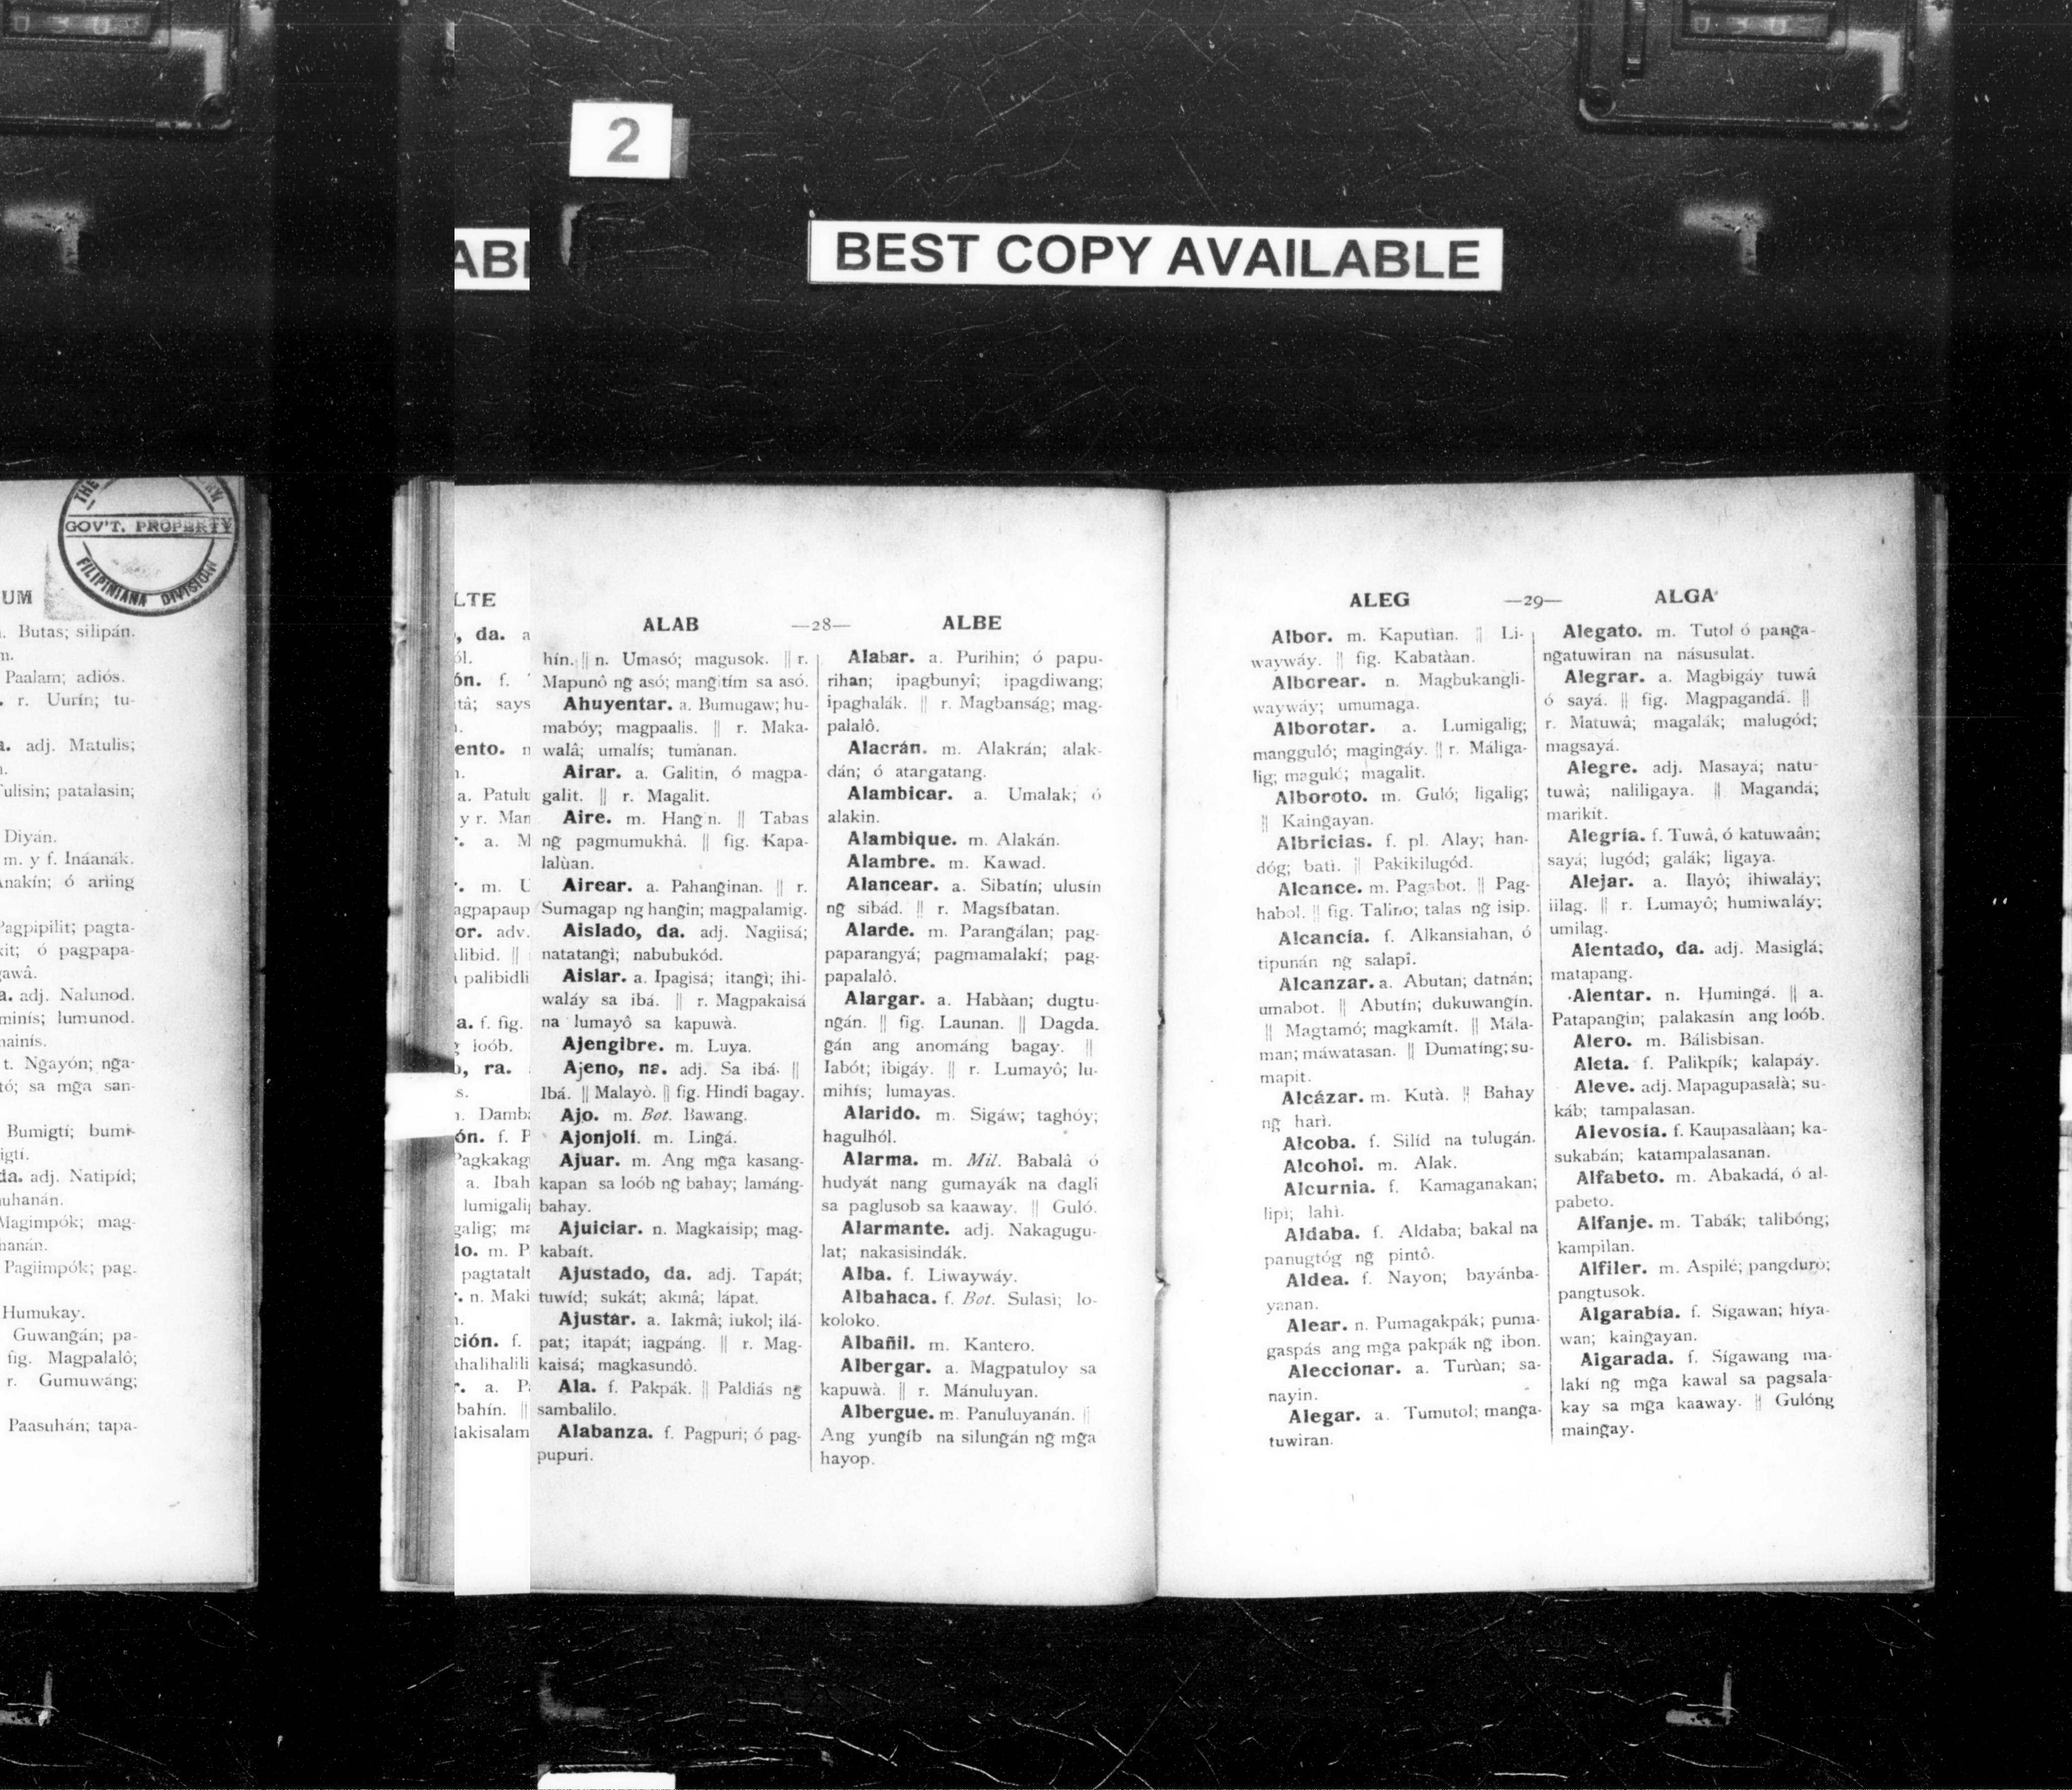 2
BEST COPY AVAILABLE
ABI
THE
GOV'T. PROPERTY
FILIPINIANA DIVISION
UM
Butas; silipán.
Paalam; adiós.
r. Uurín; tu-
adj. Matulis;
patalasin;
Diyán.
m. y f. Ináanák.
ó ariing
pagta-
ó pagpapa-
adj. Nalunod.
lumunod.
t. Ngayón; nga-
sa mga san-
Bumigtí; bumi-
adj. Natipíd;
Magimpók; mag-
Pagiimpók; pag.
Humukay.
Guwang̃án; pa-
fig. Magpalalô;
r. Gumuwáng;
Paasuhán; tapa-
LTE
, da. a
ón. f.
ento.
a. Patulu
y r. Man
a. M
m. U
or. adv.
palibidli
a. f. fig.
loób.
o, ra.
ón. f. P
a. Ibah
do. m. P
pagtatalt
n. Maki
ción. f.
a. P
ALAB —28— ALBE
hín. || n. Umasó; magusok. || r.
Mapunô ng̃ asó; mang̃itím sa asó.
Ahuyentar. a. Bumugaw; hu-
mabóy; magpaalis. || r. Maka-
walâ; umalís; tumànan.
Airar. a. Galitin, ó magpa-
galit. || r. Magalit.
Aire. m. Hang n. || Tabas
ng̃ pagmumukhâ. || fig. Kapa-
lalùan.
Airear. a. Pahang̃inan. || r.
Sumagap ng̃ hang̃in; magpalamig.
Aislado, da. adj. Nagiisá;
natatang̃ì; nabubukód.
Aislar. a. Ipagisá; itang̃ì; ihi-
waláy sa ibá. || r. Magpakaisá
na lumayô sa kapuwà.
Ajengibre. m. Luya.
Ajeno, na. adj. Sa ibá. ||
Ibá. || Malayò. || fig. Hindî bagay.
Ajo. m. Bot. Bawang.
Ajonjolí. m. Ling̃á.
Ajuar. m. Ang mg̃a kasang-
kapan sa loób ng̃ bahay; lamáng-
bahay.
Ajuiciar. n. Magkaisip; mag-
kabaít.
Ajustado, da. adj. Tapát;
tuwíd; sukát; akmâ; lápat.
Ajustar. a. Iakmâ; iukol; ilá-
pat; itapát; iagpáng. || r. Mag-
kaisá; magkasundô.
Ala. f. Pakpák. || Paldiás ng̃
sambalilo.
Alabanza. f. Pagpuri; ó pag-
pupuri.
Alabar. a. Purihin; ó papu-
rihan; ipagbunyî; ipagdiwang;
ipaghalák. || r. Magbanság; mag-
palalô.
Alacrán. m. Alakrán; alak-
dán; ó atangatang.
Alambicar. a. Umalak; ó
alakin.
Alambique. m. Alakán.
Alambre. m. Kawad.
Alancear. a. Sibatín; ulusin
ng̃ sibád. || r. Magsíbatan.
Alarde. m. Parang̃álan; pag-
paparangyá; pagmamalakí; pag-
papalalô.
Alargar. a. Habàan; dugtu-
ng̃án. || fig. Launan. || Dagda.
g̃án ang anománg bagay. ||
Iabót; ibigáy. || r. Lumayô; lu-
mihís; lumayas.
Alarido. m. Sigáw; taghóy;
hagulhól.
Alarma. m. Mil. Babalâ ó
hudyát nang gumayák na dagli
sa paglusob sa kaaway. || Guló.
Alarmante. adj. Nakagugu-
lat; nakasisindák.
Alba. f. Liwaywáy.
Albahaca. f. Bot. Sulasì; lo-
koloko.
Albañil. m. Kantero.
Albergar. a. Magpatuloy sa
kapuwà. || r. Mánuluyan.
Albergue. m. Panuluyanán. ||
Ang yung̃ib na silung̃án ng̃ mg̃a
hayop.
ALEG —29— ALGA
Albor. m. Kaputìan. || Li-
waywáy. || fig. Kabatàan.
Alborear. n. Magbukangli-
waywáy; umumaga.
Alborotar. a. Lumigalig;
mangguló; maging̃áy. || r. Máliga-
lig; maguló; magalit.
Alboroto. m. Guló; ligalig;
|| Kaing̃ayan.
Albricias. f. pl. Alay; han-
dóg; batì. || Pakikilugód.
Alcance. m. Pagabot. || Pag-
habol. || fig. Talino; talas ng̃ isip.
Alcancía. f. Alkansiahan, ó
tipunán ng̃ salapî.
Alcanzar. a. Abutan; datnán;
umabot. || Abutín; dukuwang̃ín.
|| Magtamó; magkamít. || Mála-
man; máwatasan. || Dumatíng; su-
mapit.
Alcázar. m. Kutà. || Bahay
ng̃ harì.
Alcoba. f. Silíd na tulugán.
Alcohol. m. Alak.
Alcurnia. f. Kamaganakan;
lipì; lahì.
Aldaba. f. Aldaba; bakal na
panugtóg ng̃ pintô.
Aldea. f. Nayon; bayánba-
yanan.
Alear. n. Pumagakpák; puma-
gaspás ang mg̃a pakpák ng̃ ibon.
Aleccionar. a. Turùan; sa-
nayin.
Alegar. a. Tumutol; mang̃a-
tuwiran.
Alegato. m. Tutol ó pang̃a-
ng̃atuwiran na násusulat.
Alegrar. a. Magbigáy tuwâ
ó sayá. || fig. Magpagandá. ||
r. Matuwâ; magalák; malugód;
magsayá.
Alegre. adj. Masayá; natu-
tuwâ; naliligaya. || Magandá;
marikít.
Alegría. f. Tuwâ, ó katuwaân;
sayá; lugód; galák; ligaya.
Alejar. a. Ilayô; ihiwaláy;
iilag. || r. Lumayô; humiwaláy;
umilag.
Alentado, da. adj. Masiglá;
matapang.
Alentar. n. Huming̃á. || a.
Patapang̃in; palakasín ang loób.
Alero. m. Bálisbisan.
Aleta. f. Palikpík; kalapáy.
Aleve. adj. Mapagupasalà; su-
káb; tampalasan.
Alevosía. f. Kaupasalàan; ka-
sukabán; katampalasanan.
Alfabeto. m. Abakadá, ó al-
pabeto.
Alfanje. m. Tabák; talibóng;
kampilan.
Alfiler. m. Aspilé; pangduro;
pangtusok.
Algarabía. f. Sígawan; híya-
wan; kaing̃ayan.
Algarada. f. Sígawang ma-
lakí ng̃ mg̃a kawal sa pagsala-
kay sa mg̃a kaaway. || Gulóng
maing̃ay.